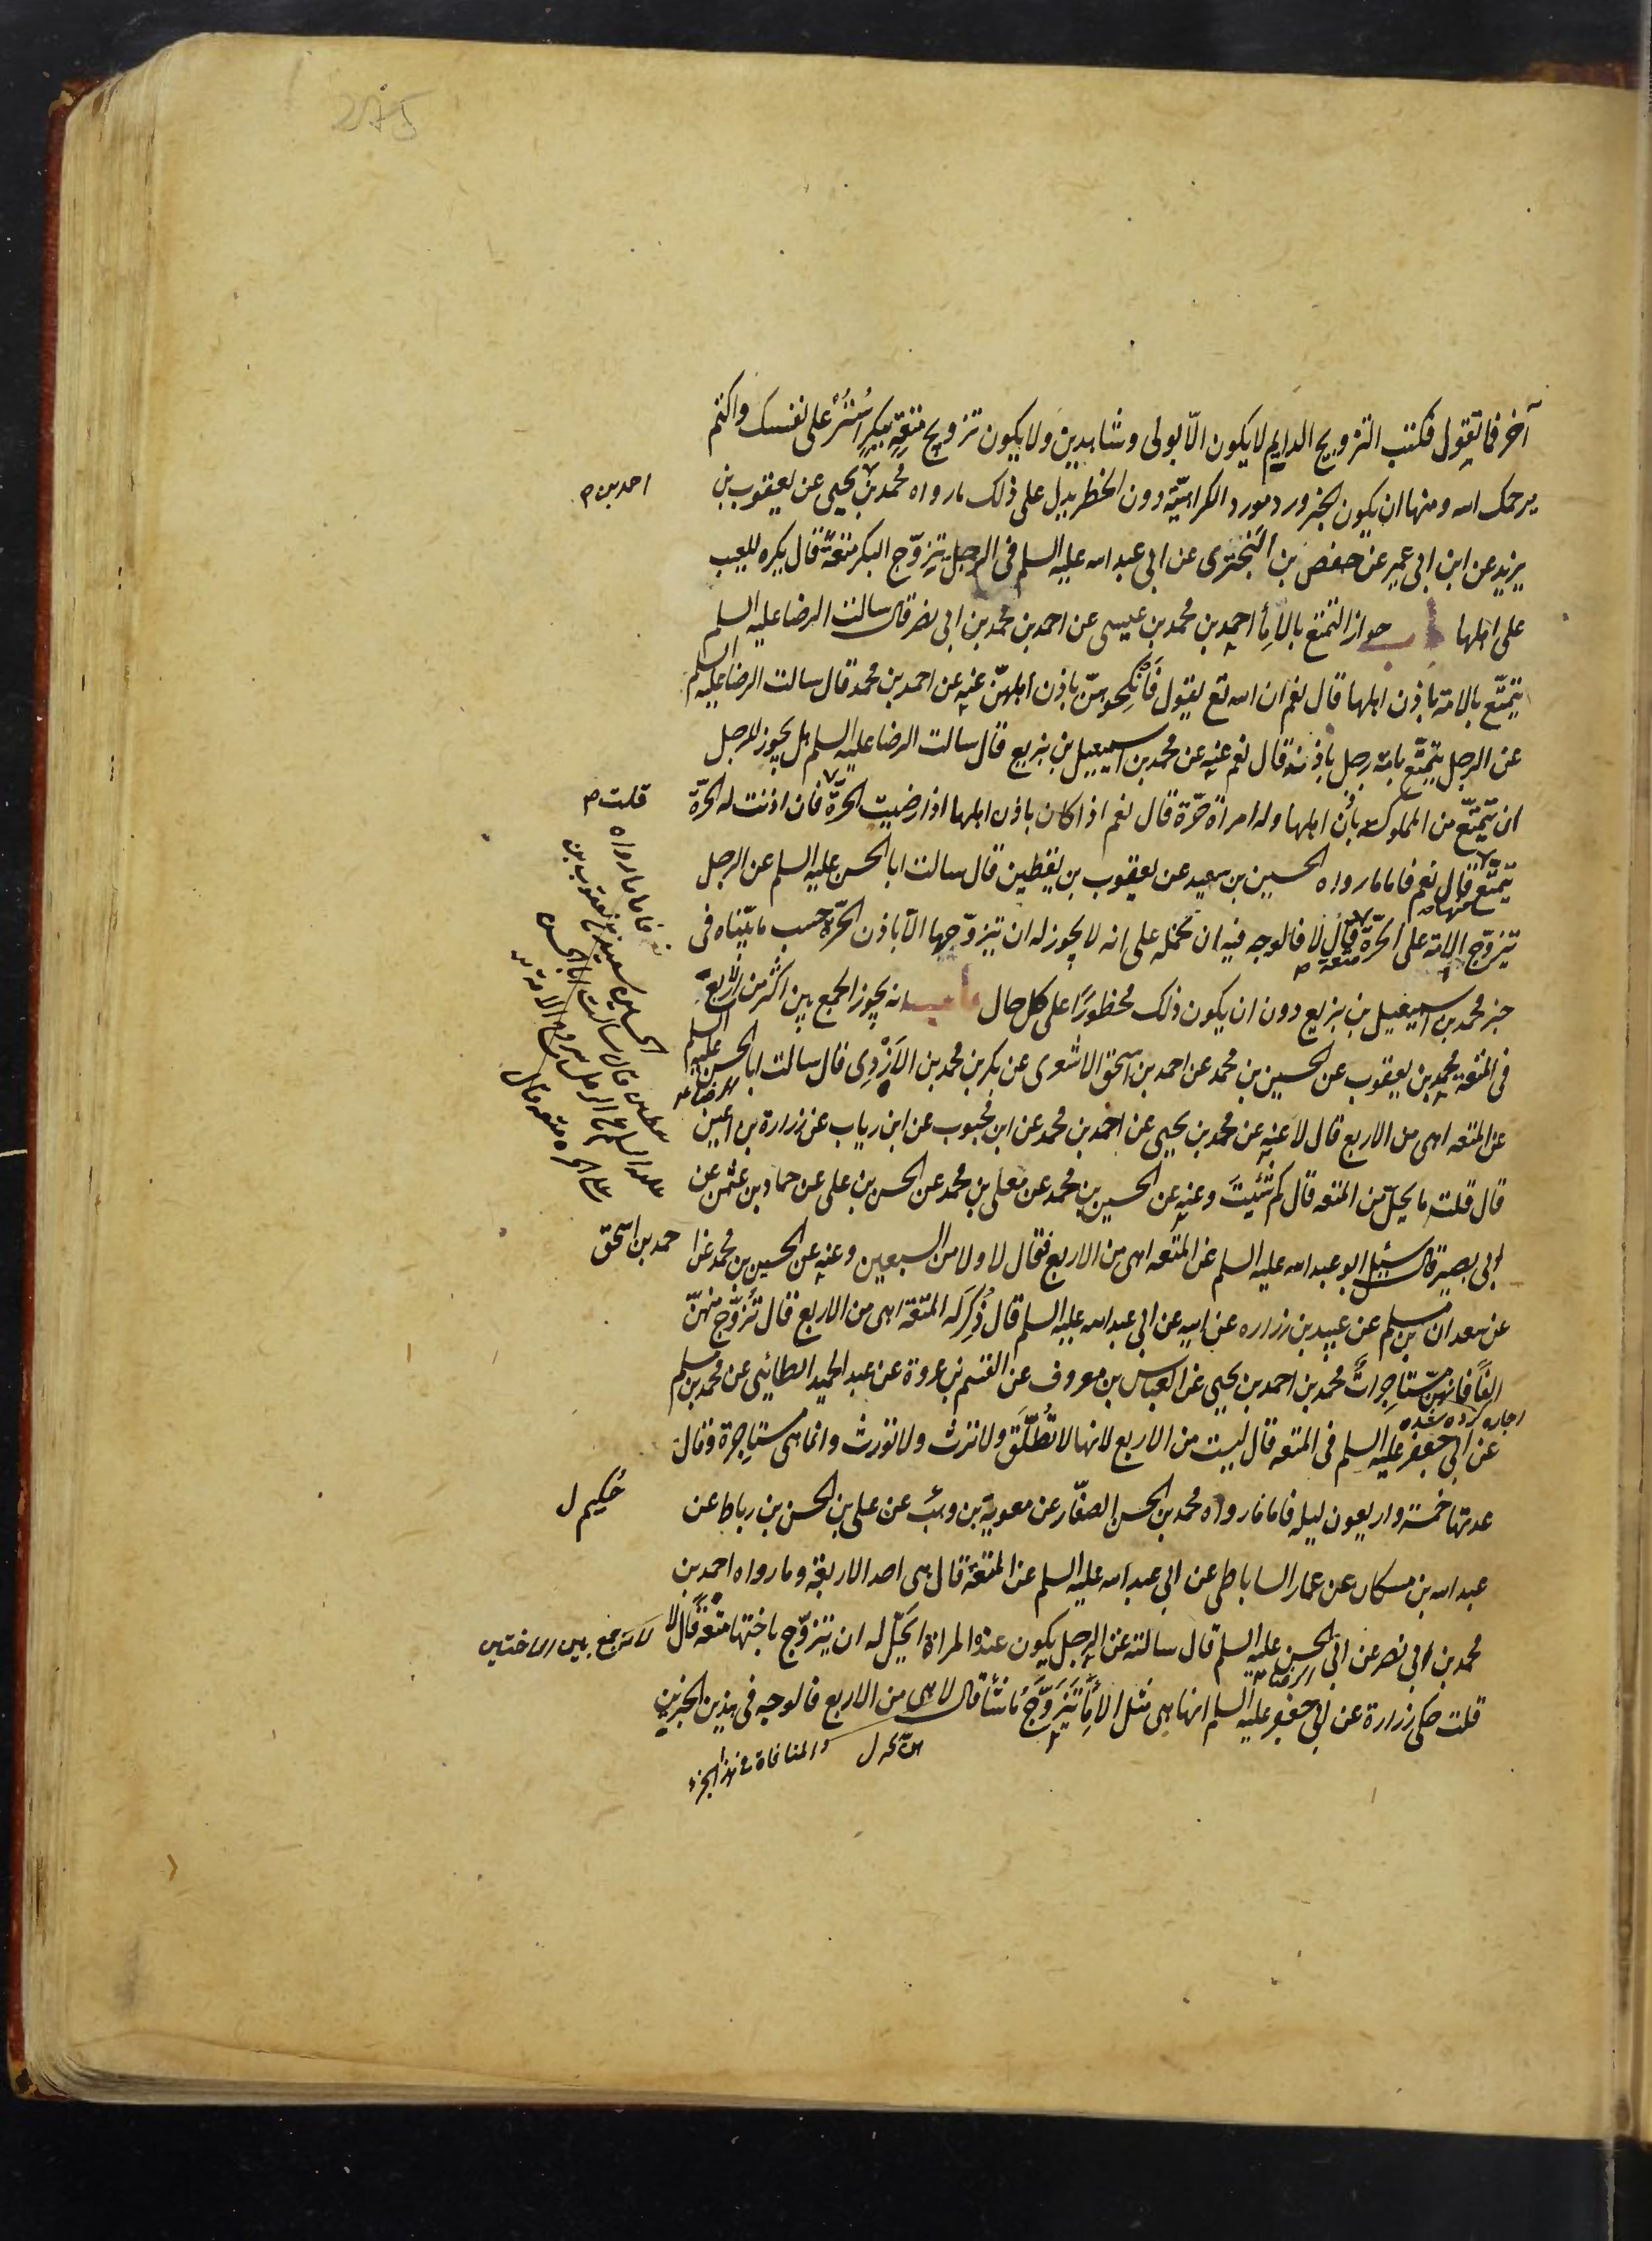 275
آخر فما تقول فكتب التزويج الدايم لا يكون الّا بولى وشاهدين ولا يكون تزويج متعةٍ ببكرٍ اُستُرْ على نفسك واكتم
يرحمك الله ومنها ان يكون الخبر ورد مورد الكراهيّة دون الحظر يدل على ذلك ما رواه محمد بن يحيى عن يعقوب بن
احمد بن م
يزيد عن ابن ابى عمير عن حفص بن البَخْتَرى عن ابى عبد الله عليه السلم فى الرجل يتزوّج البكر متعةً قال يكره للعيب
على اهلها باب جواز التمتع بالاِمأ احمد بن محمد بن عيسى عن احمد بن محمد بن ابى نصر قال سالت الرضا عليه السلم
يتمتّع بالامة باذن اهلها قال نعم ان الله تع يقول فَانْكِحوهنّ باذن اهلهنّ عنه عن احمد بن محمد قال سالت الرضا عليه السلم
عن الرجل يتمتّع بامة رجل باذنه قال نعم عنه عن محمد بن اسمعيل بن بزيع قال سالت الرضا عليه السلم هل يجوز للرجل
ان يتمتّع من المملوكة باذن اهلها وله امراة حرّة قال نعم اذا كان باذن اهلها اذا رضيت الحرّة فان اذنت له الحرّة
قلت م
يتمتّع منها قال نعم فاما ما رواه الحسين بن سعيد عن يعقوب بن يقطين قال سالت ابا الحسن عليه السلم عن الرجل
يتزوّج الامة على الحرّة متعة قال لا فالوجه فيه ان نحمله على انه لا يجوز له ان يتزوّجها الّا باذن الحرّة حسب ما بيّناه فى
خبر محمد بن اسمعيل بن بزيع دون ان يكون ذلك محظورًا على كل حال باب انه يجوز الجمع بين اكثر من الاربع
فى المتعة محمد بن يعقوب عن الحسين بن محمد عن احمد بن اسحق الاشعرى عن بكر بن محمد بن الاَزْدِى قال سالت ابا الحسن عليه السلم
عن المتعه اهى من الاربع قال لا عنه عن محمد بن يحيى عن احمد بن محمد عن ابن محبوب عن ابن رياب عن زرارة بن اعين
قال قلت ما يحلّ من المتعه قال كم شئِتَ وعنه عن الحسين بن محمد عن معلى بن محمد عن الحسن بن على عن حماد بن عثمن عن
ابى بصير قال سئِل ابو عبد الله عليه السلم عن المتعه اهى من الاربع فقال لا ولا من السبعين وعنه عن الحسين بن محمد عن ا حمد بن اسحق
عن سعدان بن مسلم عن عبيد بن زراره عن ابيه عن ابى عبد الله عليه السلم قال ذُكِرَ له المتعة اهى من الاربع قال تزوّج منهنّ
الفًا فانهن مستاجراتٌ محمد بن احمد بن يحيى عن العباس بن معروف عن القسم بن عروة عن عبد الحميد الطائِى عن محمد بن مسلم
اجاره كرده شده
عن ابى جعفر عليه السلم فى المتعه قال ليست من الاربع لانها لا تُطلّق ولا ترث ولا تورث وانما هى مستاجرة وقال
عدتها خمسة واربعون ليله فاما ما رواه محمد بن الحسن الصفّار عن معوية بن وهب عن على بن الحسن بن رباط عن
حُكيم ل
عبد الله بن مسكان عن عمار الساباطى عن ابى عبد الله عليه السلم عن المتعة قال هى احد الاربعة وما رواه احمد بن
محمد بن ابى نصر عن ابى الحسن عليه السلم قال سالته عن الرجل يكون عنده المراة ايَحلّ له ان يتزوّج باختها متعةً قال لا
قلت حكى زرارة عن ابى جعفر عليه السلم انها هى مثل الاِمأ يَتزوّج ما شأ قال لا هى من الاربع فالوجه فى هذين الخبرين
فاما ما رواه
الحسين بن سعيد عن يعقوب بن
يقطين قال سالت ابا الحسن
عليه السلم عن الرجل يتزوج الامة
على الحره متعه قال